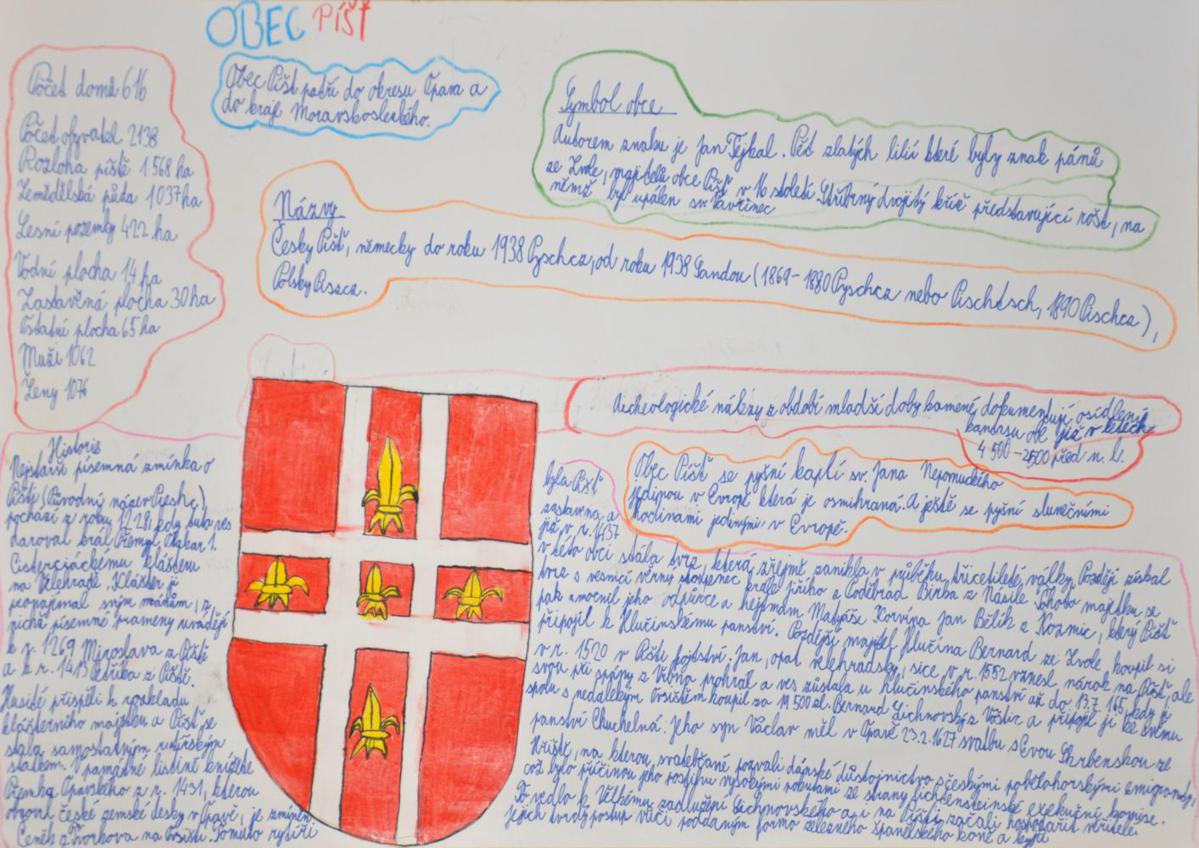 OBEC PÍŠŤ
Počet domů 616
Počet obyvatel 2138
Rozloha píště 1568 ha
Zemědělská půda 1037 ha
Lesní pozemky 422 ha
Vodní plocha 14 ha
Zastavěná plocha 30 ha
Ostatní plocha 65 ha
Muži 1062
Ženy 1076
Obec Píšť patří do okresu Opava a
do kraje Moravskoslezkého.
Symbol obce
Autorem znaku je Jan Tejkal. Pět zlatých lilií které byly znak pánů
ze Zvole, majitelé obce Píšť v 16 století. Stříbrný dvojitý kříž představující rošt, na
němž byl upálen sv. Vavřinec
Názvy
Česky Píšť, německy do roku 1938 Pyschcz, od roku 1938 Sandau (1869-1880 Pyschcz nebo Pischtsch, 1890 Pischcz),
Polsky Piszcz.
Archeologické nálezy z období mladší doby kamené, dokumentují osídlení
katastru obce již v letech
4 500-2500 před n. l.
Obec Píšť se pyšní kaplí sv. Jana Nepomuckého
jedinou v Evropě která je osmihraná. A ještě se pyšní slunečními
hodinami jedinými v Evropě.
Historie
Nejstarší písemná zmínka o
Píšti (Původní název Pieshc)
pochází z roku 1228, kdy tuto ves
daroval král Přemysl Otakar 1.
Cisterciáckému klášteru
na Velehradě. Klášter ji
propronajímal svým mánům, z
nichž písemné prameny uvádějí
k r. 1269 Miroslava z Píště
a k r. 1415 Petříka z Píště.
Husité přispěli k rozkladu
klášterního majetku a Píšť se
stala samostatným rytířským
statkem. V památné listině knížete
Přemka Opavského z r. 1431, kterou
obnovil české zemské desky v Opavě, je zmíněn
Ceněk z Tvorkova na Vrsišti. Tomuto rytíři
byla Píšť
zastavena a
již v r. 1437
v této obci stála tvrz, která zřejmě zanikla v průběhu třicetileté války. Později získal
tvrz s vesnicí věrný stoupenec krále Jiřího z Poděbrad Bírka z Násile. Tohoto majetku se
pak zmocnil jeho odpůrce a hejtman Matyáše Korvína Jan Bělík z Kornic, který Píšť
připojil k Hlučínskému panství. Pozdější majitel Hlučína Bernard ze Zvole, koupil si
v r. 1520 v Píšti fojtství. Jan, opat velehradský, sice v r. 1552 vznesl nárok na Píšť, ale
svou při s pány z Vrbna prohrál a ves zůstala u hlučínského panství až do 13.7. 165, kdy ji
spolu s nedalekým Vrsištěm koupil za 19 500 zl. Bernard Lichnovský z Voštic a připojil ji ke svému
panství Chuchelná. Jeho syn Václav měl v Opavě 23.2.1627 svatbu s Evou Skrbenskou ze
Hříště, na kterou svatebčané pozvali dánské důstojnictvo s českými pobělohorskými emigranty,
což bylo příčinou jeho postihu vysokými pokutami ze strany lichtensteinské exekuční komise.
To vedlo k velkému zadlužení Lichnovského a i na Píšti začali hospodařit věřitelé.
Jejich tvrdý postup vůči poddaným formo železného španělského koně a